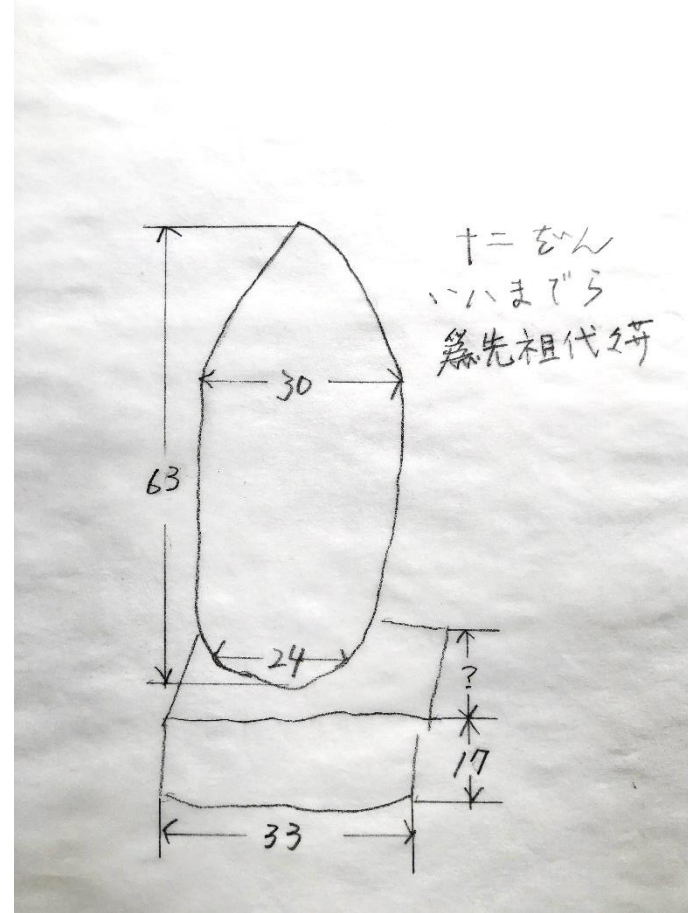 十二
いハまでら
為先祖代々
30
63
24
?
17
33